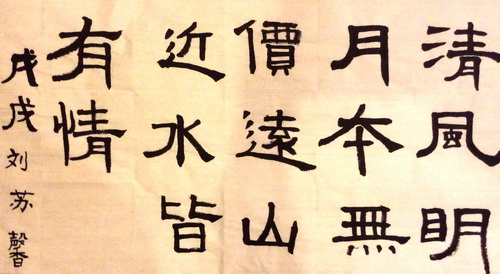 清風明
月本無
價遠山
近水皆
有情
戊戌刘苏馨